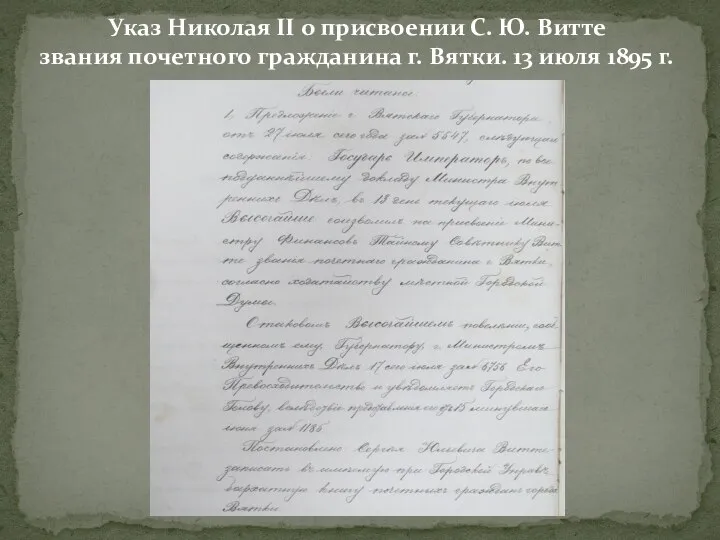 Указ Николая II о присвоении С. Ю. Витте
звания почетного гражданина г. Вятки. 13 июля 1895 г.
Были читаны:
1, Предложенiе г. Вятскаго Губернатора,
отъ 27 iюля сего года за № 5547, слѣдующаго
содержанiя: Государь Императоръ, по все
подданнѣйшему докладу Министра Внут
реннихъ Дѣлъ, въ 13 день текущаго iюля
Высочайше соизволилъ на присвоенiе Мини-
стру Финансовъ Тайному Совѣтнику Вит-
те званiя почетнаго гражданина г. Вятки,
согласно ходатайству мѣстной Городской
Думы.
О таковомъ Высочайшемъ повелѣнiи, сооб
щенномъ ему, Губернатору, г. Министромъ
Внутреннихъ Дѣлъ 17 сего iюля за № 6756 Его
Превосходительство и увѣдомляетъ Городскаго
Голову, вслѣдствiе представленiя его отъ 15 минувшаго
iюня за № 1186
Постановлено Сергѣя Юльевича Витте
записать въ имѣемую при Городской Управѣ
бархатную книгу почетныхъ гражданъ города
Вятки